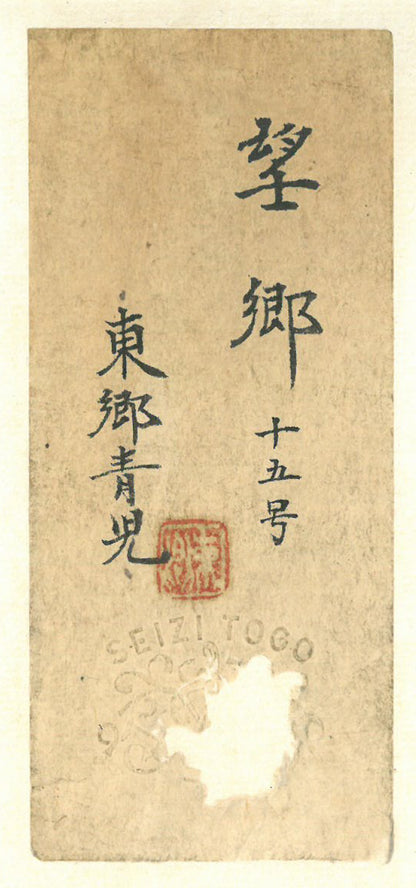 望郷 十五号
東郷青児
SEIZI TOGO